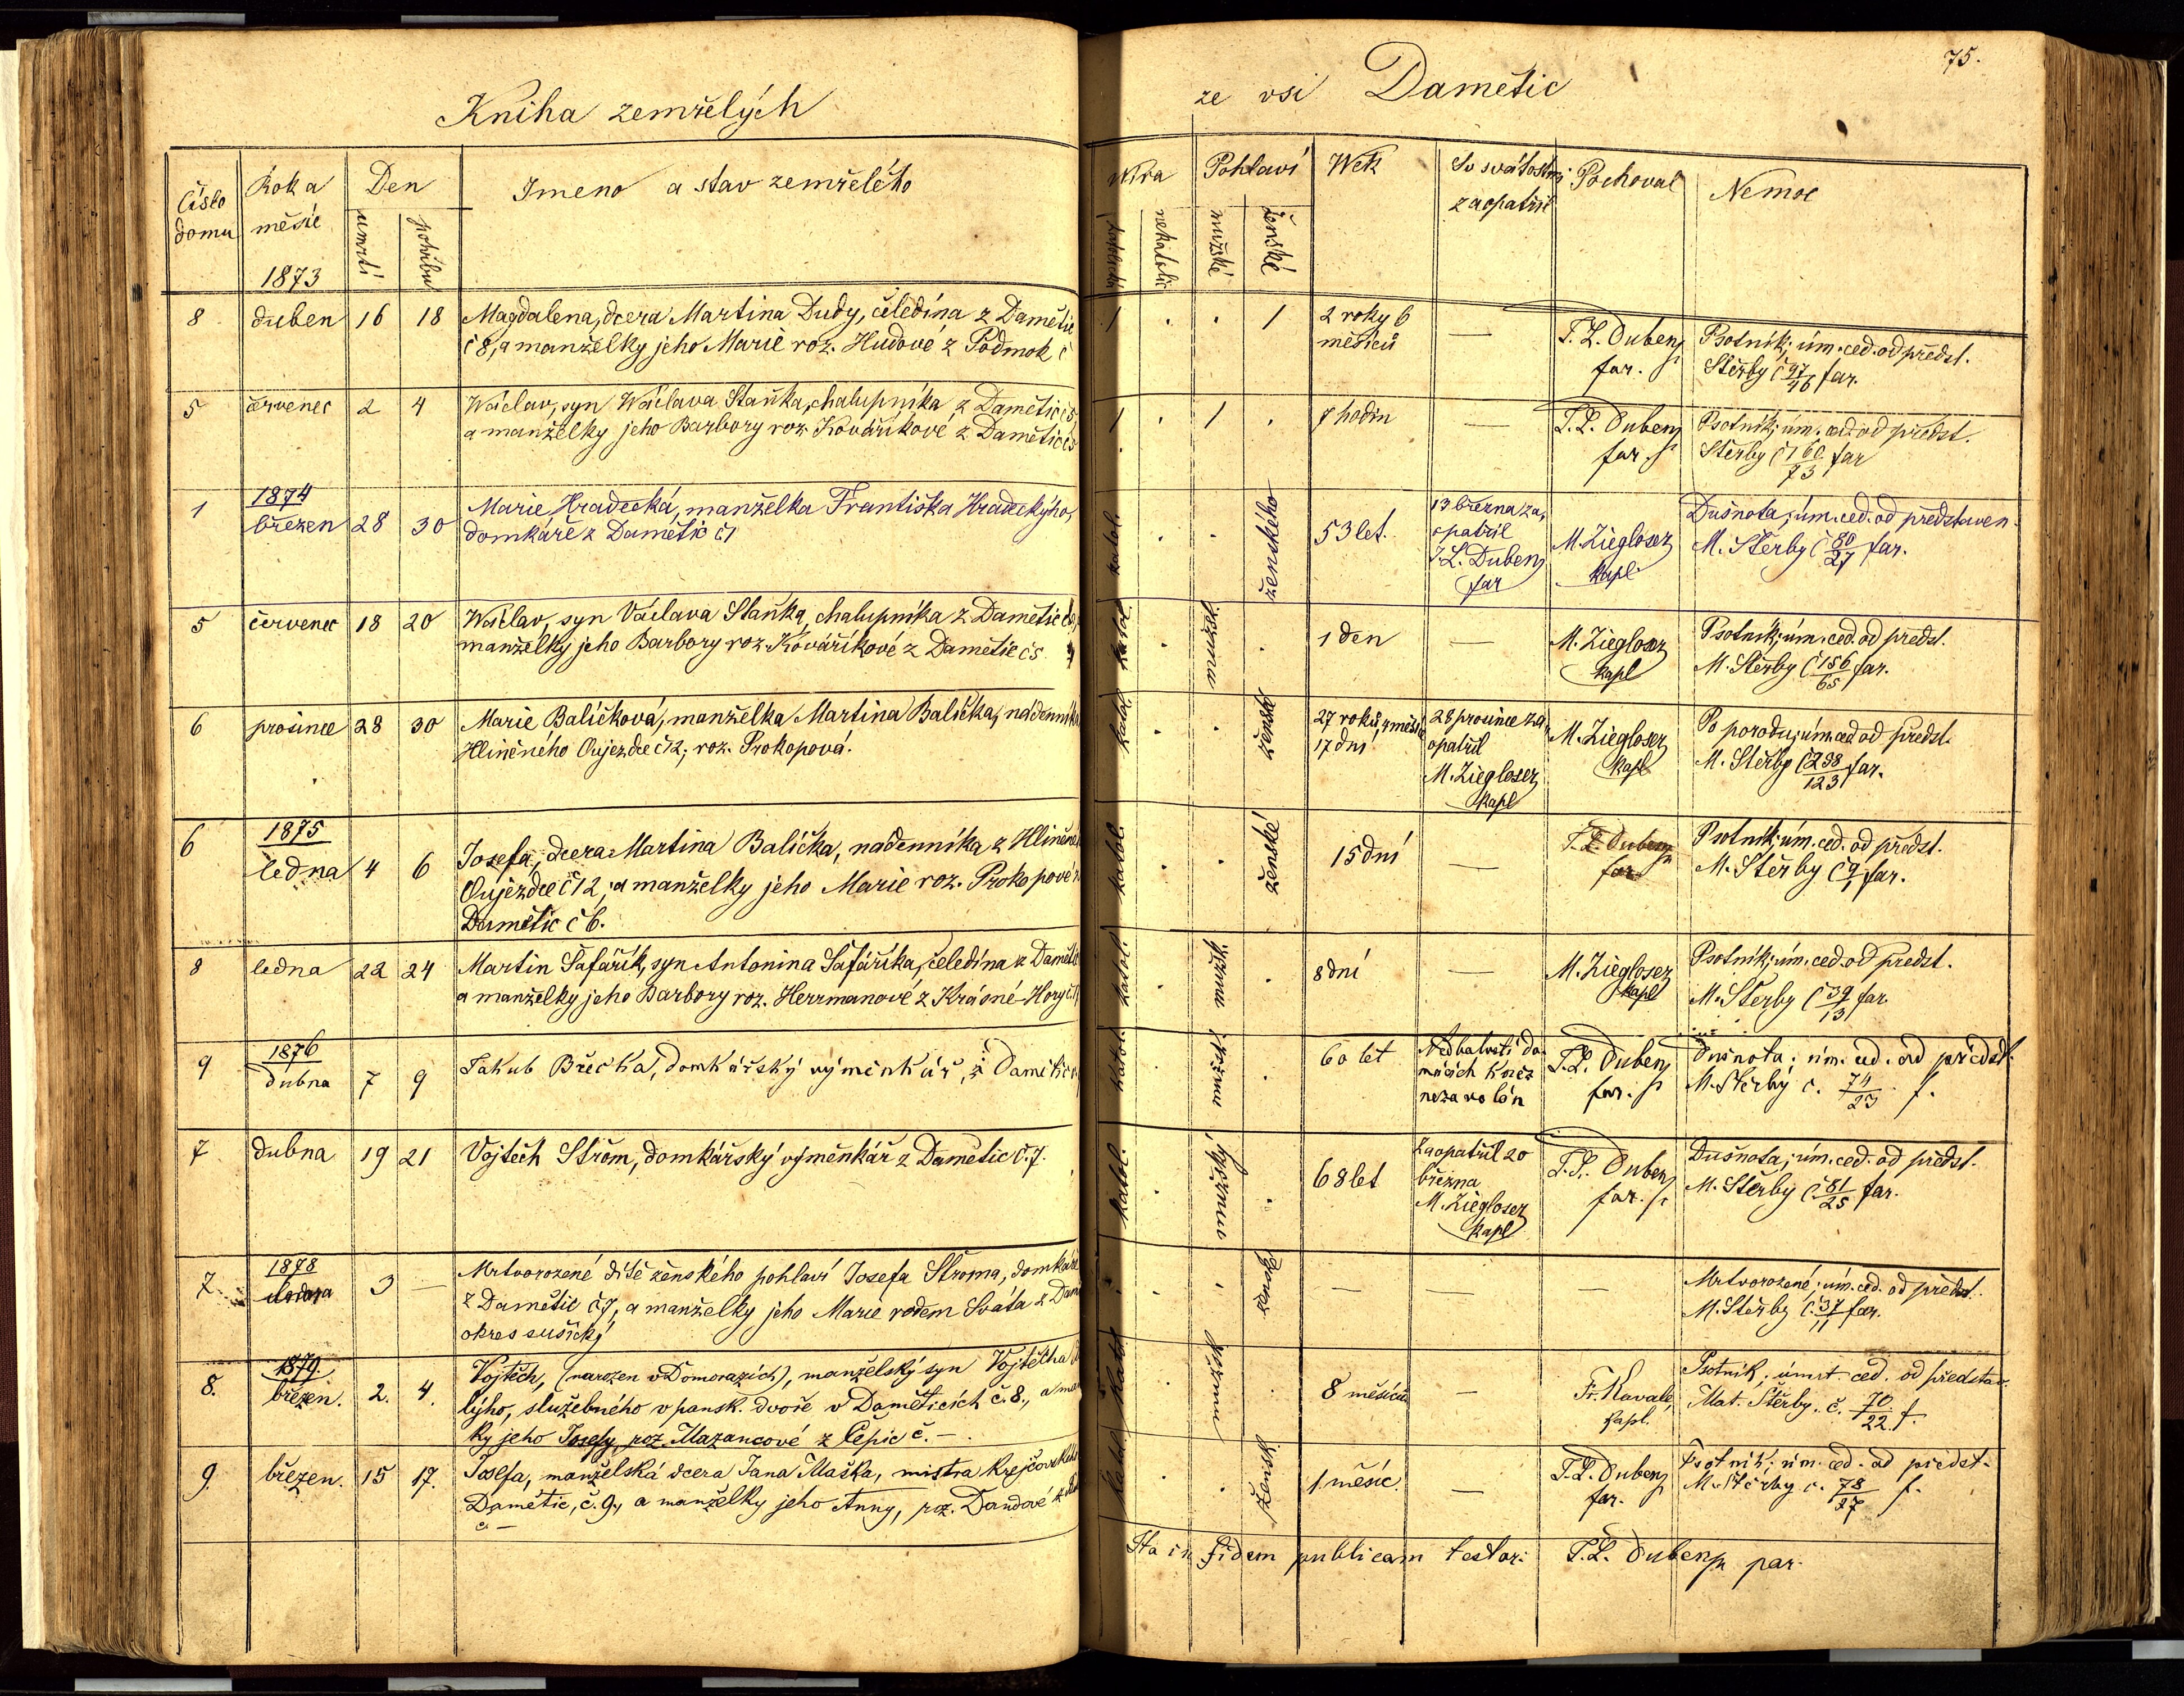 Kniha zemřelých
ze vsi Damětic
75.
Číslo domu
Rok a měsíc
Den
úmrtí
pohřbu
Jmeno a stav zemřelého
Wíra
katolick
nekatolic
Pohlaví
mužské
ženské
Wěk
Sv svátostmi zaopatřil
Pochoval
Nemoc
1873
8 duben 16 18 Magdalena, dcera Martina Dudy, čeledína z Damětic
č 8, a manželky jeho Marie roz. Hudové z Podmok č
1 . . 1 2 roky 6
měsíců
—
T. L. Dubenj
far.
Psotník; úm. ced. od předst.
Štěrby č 97/46 far.
5 červenec 2 4 Wáclav, syn Wáclava Staňka, chalupníka z Damětic č 5,
a manželky jeho Barbory roz. Kováříkové z Damětic č 5
1 . 1 . 7 hodin
—
T. L. Dubenj
far.
Psotník; úm. ced. od předst.
Štěrby č 160/73 far
1874
1 březen 28 30 Marie Hradecká, manželka Františka Hradeckýho,
domkáře z Damětic č 1
katol. . . ženského 53 let.
13 března za,
opatřil
T. L. Dubenj
far
M. Ziegloser
kapl.
Dušnota; úm. ced. od představen.
M. Štěrby č 80/27 far.
5 červenec 18 20 Wáclav, syn Václava Staňka, chalupníka z Damětic č 5, a
manželky jeho Barbory roz. Kováříkové z Damětic č 5.
katol. . mužské . 1 den
—
M. Ziegloser
kapl
Psotník; úm. ced. od předst.
M. Štěrby č 156/65 far.
6 prosinec 28 30 Marie Balíčková, manželka Martina Balíčka, nádenníka
Hliněného Oujezdce č 12, roz. Prokopová.
katol . . ženské 27 roků, 7 měsíc
17 dní
28 prosince za,
opatřil
M. Ziegloser
kapl
M. Ziegloser
kapl
Po porodu; úm. ced. od předst.
M. Štěrby č 298/123 far.
1875
6 ledna 4 6 Josefa, dcera Martina Balíčka, nádenníka z Hliněné
Oujezdce č 12, a manželky jeho Marie roz. Prokopové
Dametic č 6.
katol. . . ženské 15 dní
—
T. L. Dubenj
far
Psotník; úm. ced. od předst.
M. Štěrby č 9/1 far.
8 ledna 22 24 Martin Šafařík, syn Antonina Šafáříka, čeledína z Damětic
a manželky jeho Barbory roz. Herrmanové z Krásné Hory č
katol. . mužské . 8 dní
—
M. Ziegloser
kapl
Psotník; úm. ced. od předst.
M. Štěrby č 39/13 far.
1876
9 dubna 7 9 Jakub Břečka, domkářský výměnkář, z Dametic
katol. . mužské . 60 let
Nedbalostí do-
mácích kněz
nezavolán
T. L. Dubenj
far.
Dušnota; úm. ced. od předst.
M. Štěrby č. 74/23 f.
7 dubna 19 21 Vojtěch Střom, domkářský výměnkář z Damětic č. 7.
katol. . mužský . 68 let
Zaopatřil 20
března
M. Ziegloser
kapl
T. L. Dubenj
far.
Dušnota; úm. ced. od předst.
M. Štěrby č 81/25 far.
1878
7 3 — Mrtvorozené dítě ženského pohlaví Josefa Střoma, domkáře
z Damětic č 7, a manželky jeho Marie rodem Sváta z
okres sušický
. . žensk — — —
Mrtvorozené; úm. ced. od předst.
M. Štěrby č. 37/11 far.
1879.
8. březen. 2. 4. Vojtěch, (narozen v Domorazích), manželský syn Vojtěcha
lýho, služebného v pansk. dvoře v Daměticích č. 8., a man
ky jeho Josefy, roz. Mazancové z Čepic č. —.
katol . mužské . 8 měsíců
—
Fr. Kavale,
kapl.
Psotník; úmrt. ced. od představ.
Mat. Štěrby. č. 70/22 f.
9. březen. 15 17. Josefa, manželská dcera Jana Maška, mistra krejčovského
Damětic, č. 9, a manželky jeho Anny, roz. Dandové z
č. —
katol . . žensk 1. měsíc.
—
T. L. Dubenj
far.
Psotník; úm. ced. od předst.
M. Štěrby č. 78/27 f.
Ita in fidem publicam testor: T. L. Dubenj par.